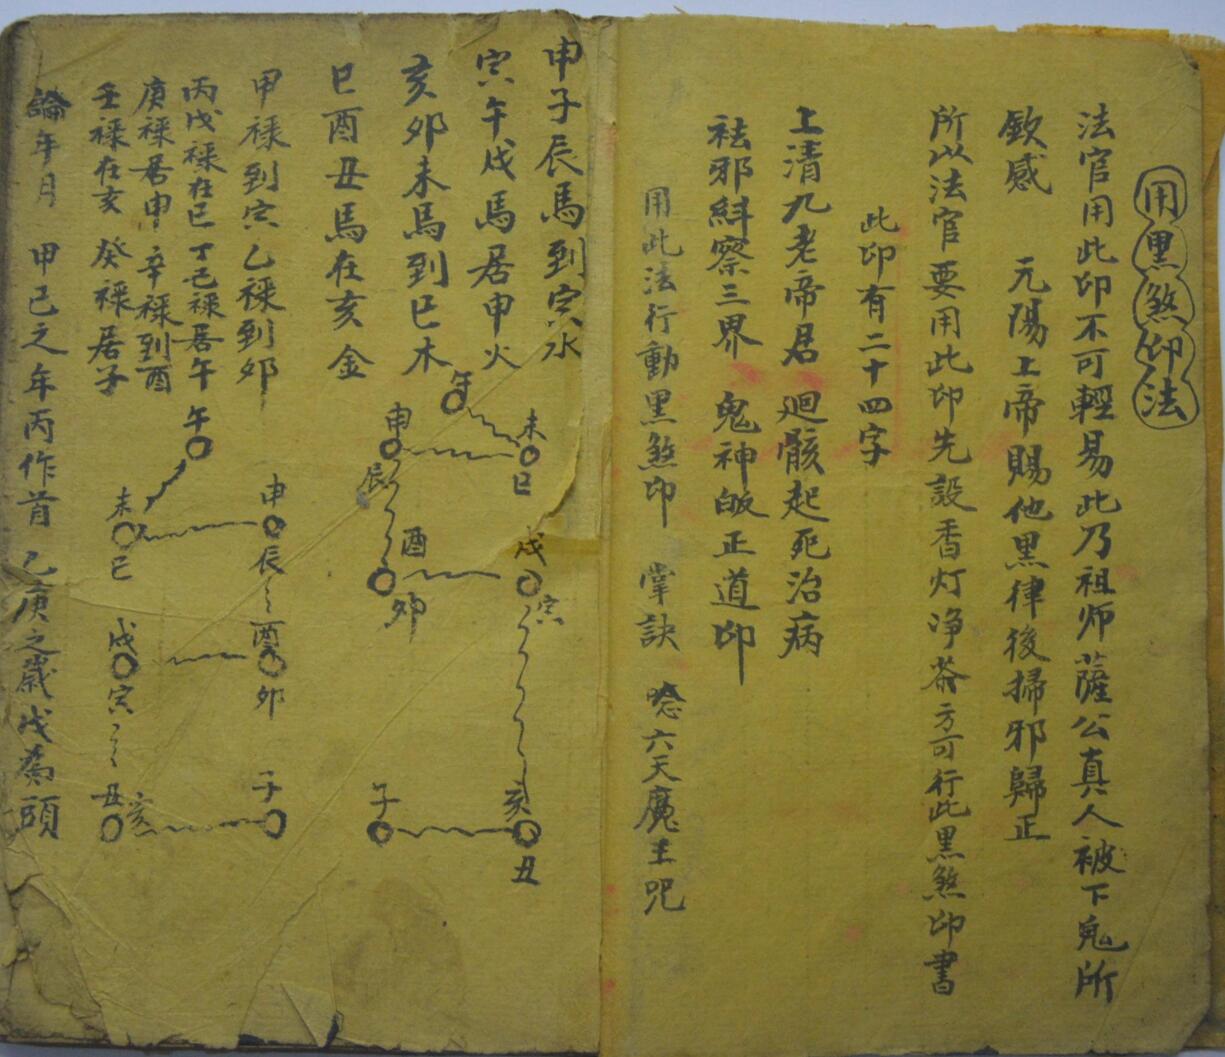 用黑煞印法
法官用此印不可輕易此乃祖师薩公真人被下鬼所
欽感 元陽上帝賜他黑律後掃邪歸正
所以法官要用此印先設香灯净茶方可行此黑煞印書
此印有二十四字
上清九老帝君 廻骸起死治病
祛邪糾察三界 鬼神皈正道印
用此法行動黑煞印 掌訣 唸六天魔王咒
申子辰馬到寅水
寅午戌馬居申火
亥卯未馬到巳木
巳酉丑馬在亥金
午 未 巳
申 辰
酉 卯
戌 寅
子 亥 丑
甲禄到寅乙禄到卯
丙戊禄在巳丁己禄居午
庚禄居申辛禄到酉
壬禄在亥癸禄居子
午
未 巳 申 辰
戌 寅 酉 卯
丑 亥 子
論年月 甲己之年丙作首 乙庚之歲戊為頭